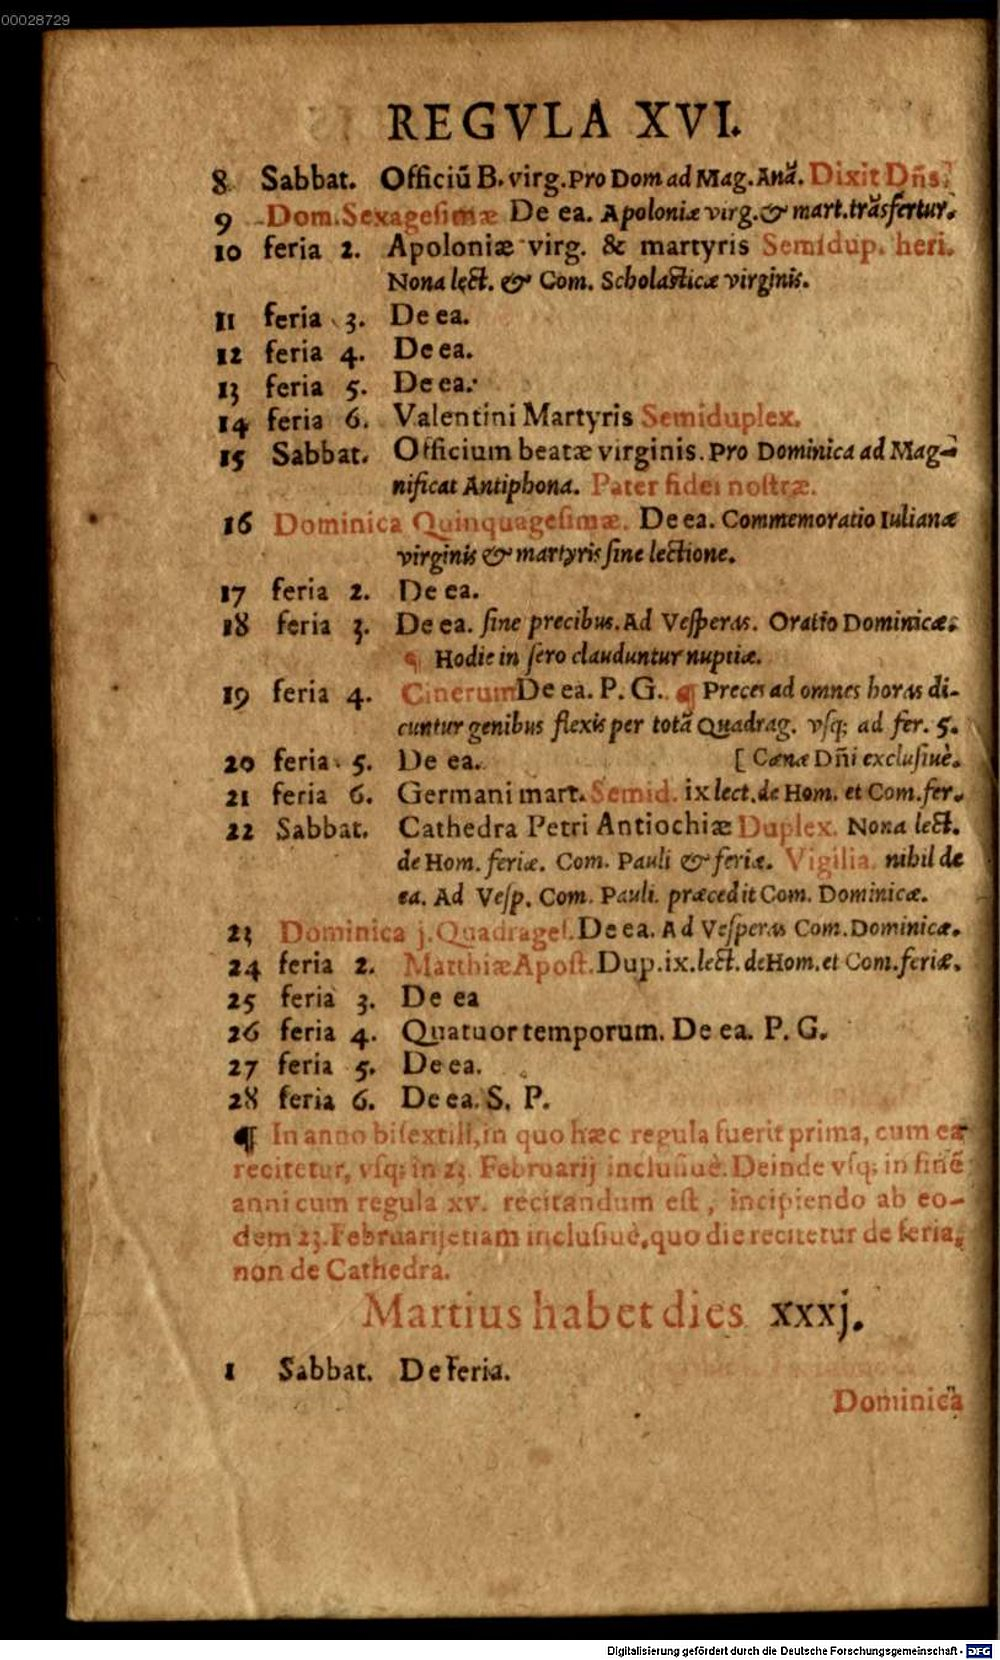 00028729
REGVLA XVI.
8 Sabbat. Officiũ B. virg. Pro Dom ad Mag. Anã. Dixit Dñs.
9 Dom. Sexagesimæ De ea. Apoloniæ virg. & mart. trãsfertur.
10 feria 2. Apoloniæ virg. & martyris Semidup. heri.
Nona lect. & Com. Scholasticæ virginis.
11 feria 3. De ea.
12 feria 4. De ea.
13 feria 5. De ea.
14 feria 6. Valentini Martyris Semiduplex.
15 Sabbat. Officium beatæ virginis. Pro Dominica ad Mag-
nificat Antiphona. Pater fidei nostræ.
16 Dominica Quinquagesimæ. De ea. Commemoratio Iulianæ
virginis & martyris sine lectione.
17 feria 2. De ea.
18 feria 3. De ea. sine precibus. Ad Vesperas. Oratio Dominicæ.
¶ Hodie in sero clauduntur nuptiæ.
19 feria 4. Cinerum De ea. P. G. ¶ Preces ad omnes horas di-
cuntur genibus flexis per totã Quadrag. vsq; ad fer. 5.
20 feria 5. De ea. [ Cænæ Dñi exclusiuè.
21 feria 6. Germani mart. Semid. ix lect. de Hom. et Com. fer.
22 Sabbat. Cathedra Petri Antiochiæ Duplex. Nona lect.
de Hom. feriæ. Com. Pauli & feriæ. Vigilia. nihil de
ea. Ad Vesp. Com. Pauli. præcedit Com. Dominicæ.
23 Dominica j. Quadrages. De ea. Ad Vesperas Com. Dominicæ.
24 feria 2. Matthiæ Apost. Dup. ix. lect. de Hom. et Com. feriæ.
25 feria 3. De ea
26 feria 4. Quatuor temporum. De ea. P. G.
27 feria 5. De ea.
28 feria 6. De ea. S. P.
¶ In anno bisextili, in quo hæc regula fuerit prima, cum ea
recitetur, vsq; in 23. Februarij inclusiuè. Deinde vsq; in finẽ
anni cum regula xv. recitandum est, incipiendo ab eo-
dem 23. Februarij etiam inclusiuè, quo die recitetur de feria,
non de Cathedra.
Martius habet dies xxxj.
1 Sabbat. De Feria.
Dominica
Digitalisierung gefördert durch die Deutsche Forschungsgemeinschaft - DFG